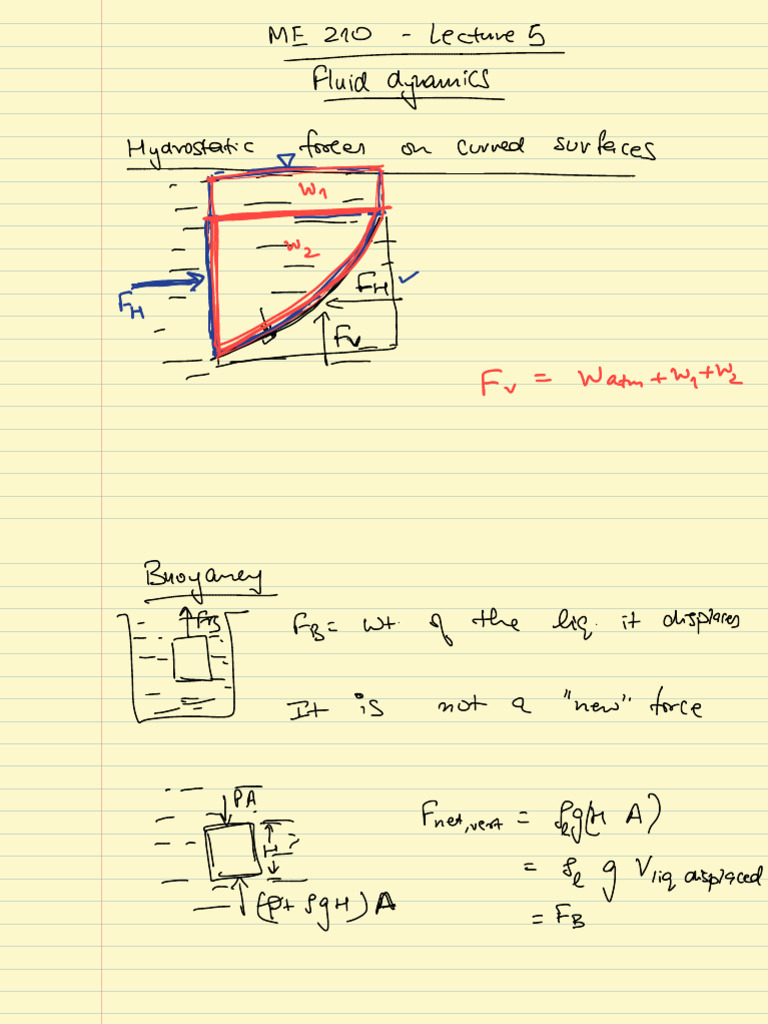 ME 210 - Lecture 5
Fluid dynamics
Hydrostatic forces on curved surfaces
W1
W2
FH
FH ✓
FV
Fv = Watm + W1 + W2
Buoyancy
FB
FB = wt. of the liq. it displaces
It is not a "new" force
PA
H
Fnet,vert = ρℓg(H A)
= ρℓ g Vliq displaced
(P + ρgH) A
= FB